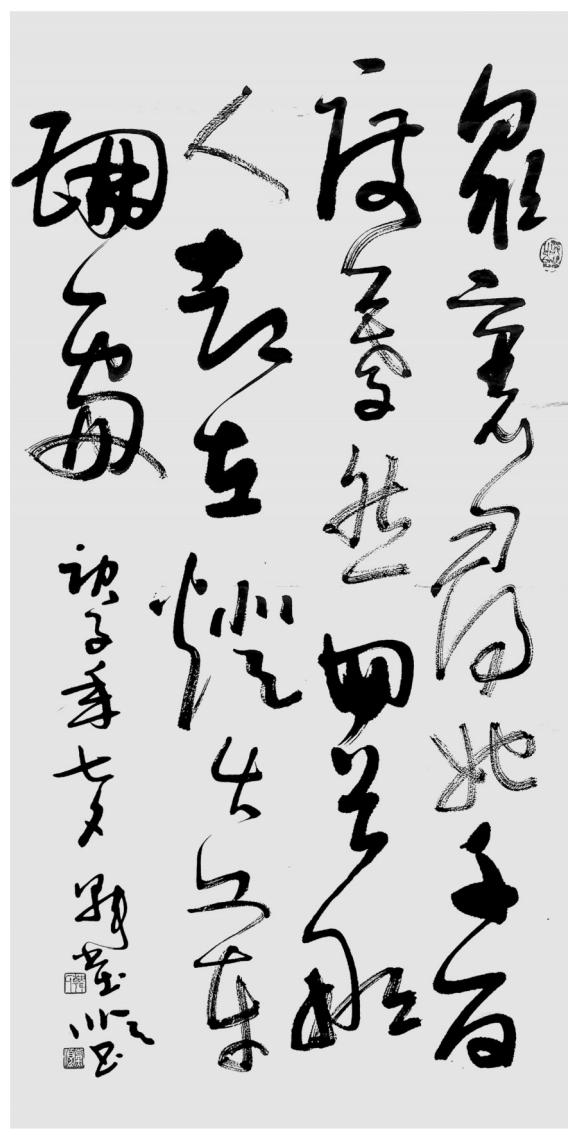 众里寻她千百
度蓦然回首那
人却在灯火阑
珊处
年七夕